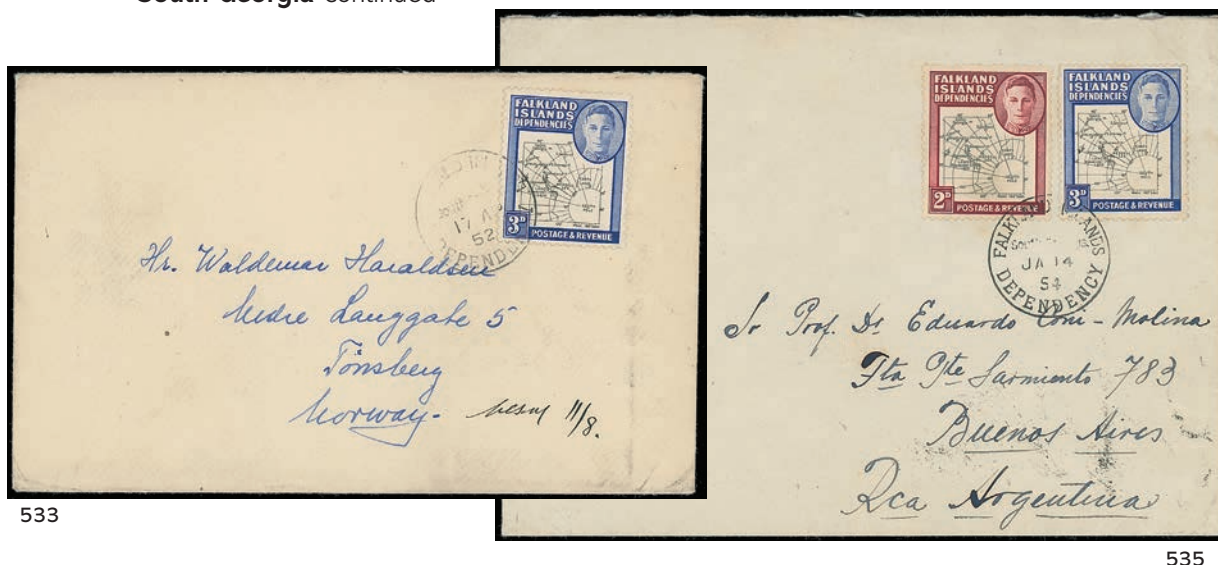 South Georgia continued
FALKLAND
ISLANDS
DEPENDENCIES
3D
POSTAGE & REVENUE
17
52
DEPEND
Hr. Waldemar Haraldsen
Nedre Langgate 5
Tönsberg
Norway-
11/8.
533
FALKLAND
ISLANDS
DEPENDENCIES
2D
POSTAGE & REVENUE
FALKLAND
ISLANDS
DEPENDENCIES
3D
POSTAGE & REVENUE
ISLANDS
JA 14
54
DEPENDENCY
Sr Prof. Dr Eduardo Coni-Molina
Pte Sarmiento 783
Buenos Aires
Rca Argentina
535